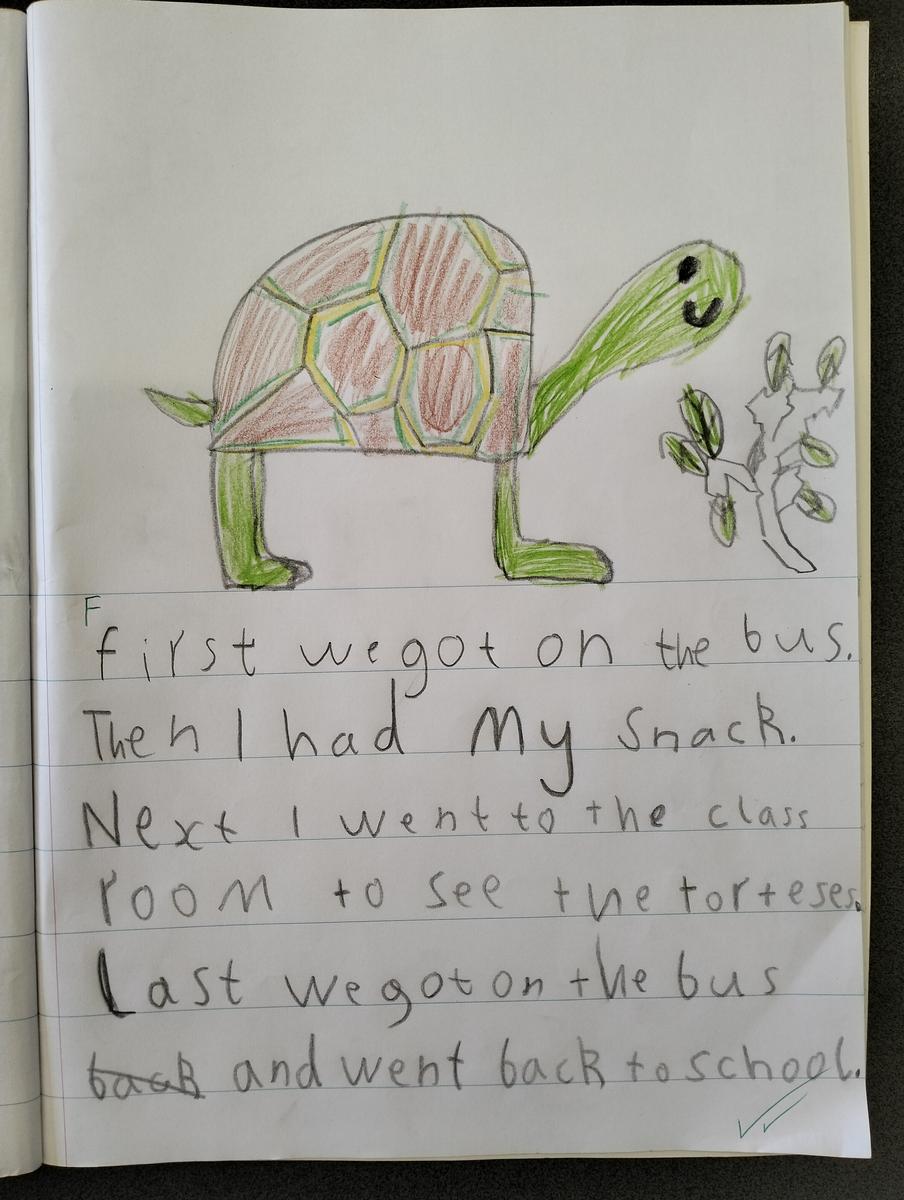 F
first we got on the bus.
Then I had My snack.
Next I went to the class
room to see the torteses.
Last we got on the bus
back and went back to school.